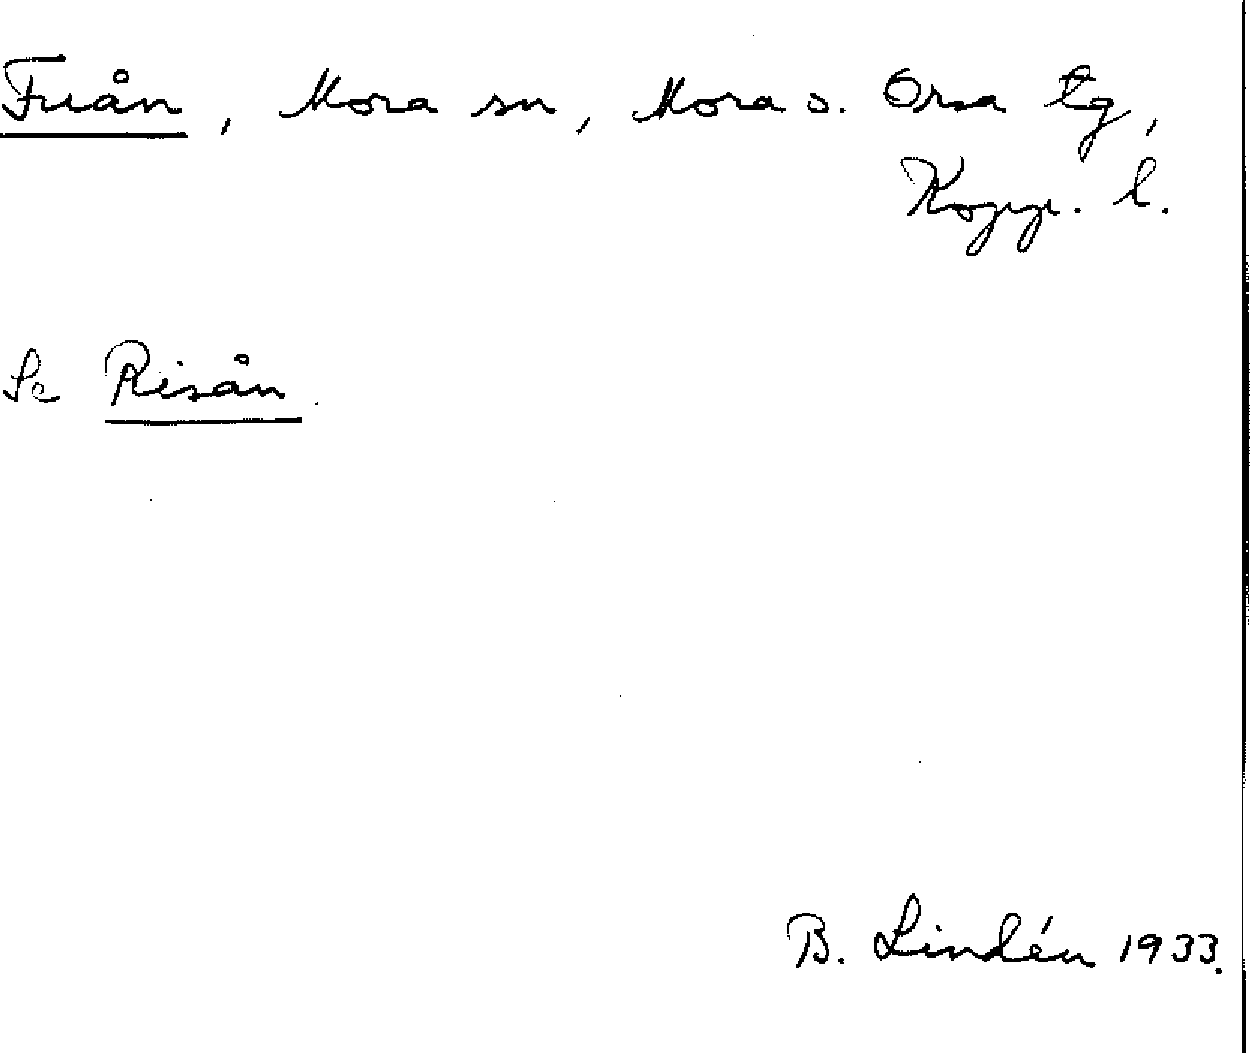 Fuån, Mora sn, Mora o. Orsa tg,
Kopp. l.
Se Risån.
B. Lindén 1933.